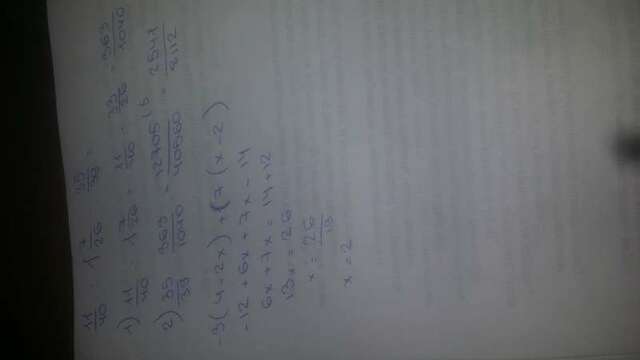 11/40 · 1 7/26 · 35/39 =
1) 11/40 · 1 7/26 = 11/40 · 33/26 = 363/1040
2) 35/39 · 363/1040 = 12705/40560 (5 = 2541/8112
-3(4-2x) + (7(x-2)
-12 + 6x + 7x - 14
6x + 7x = 14 + 12
13x = 26
x = 26/13
x = 2